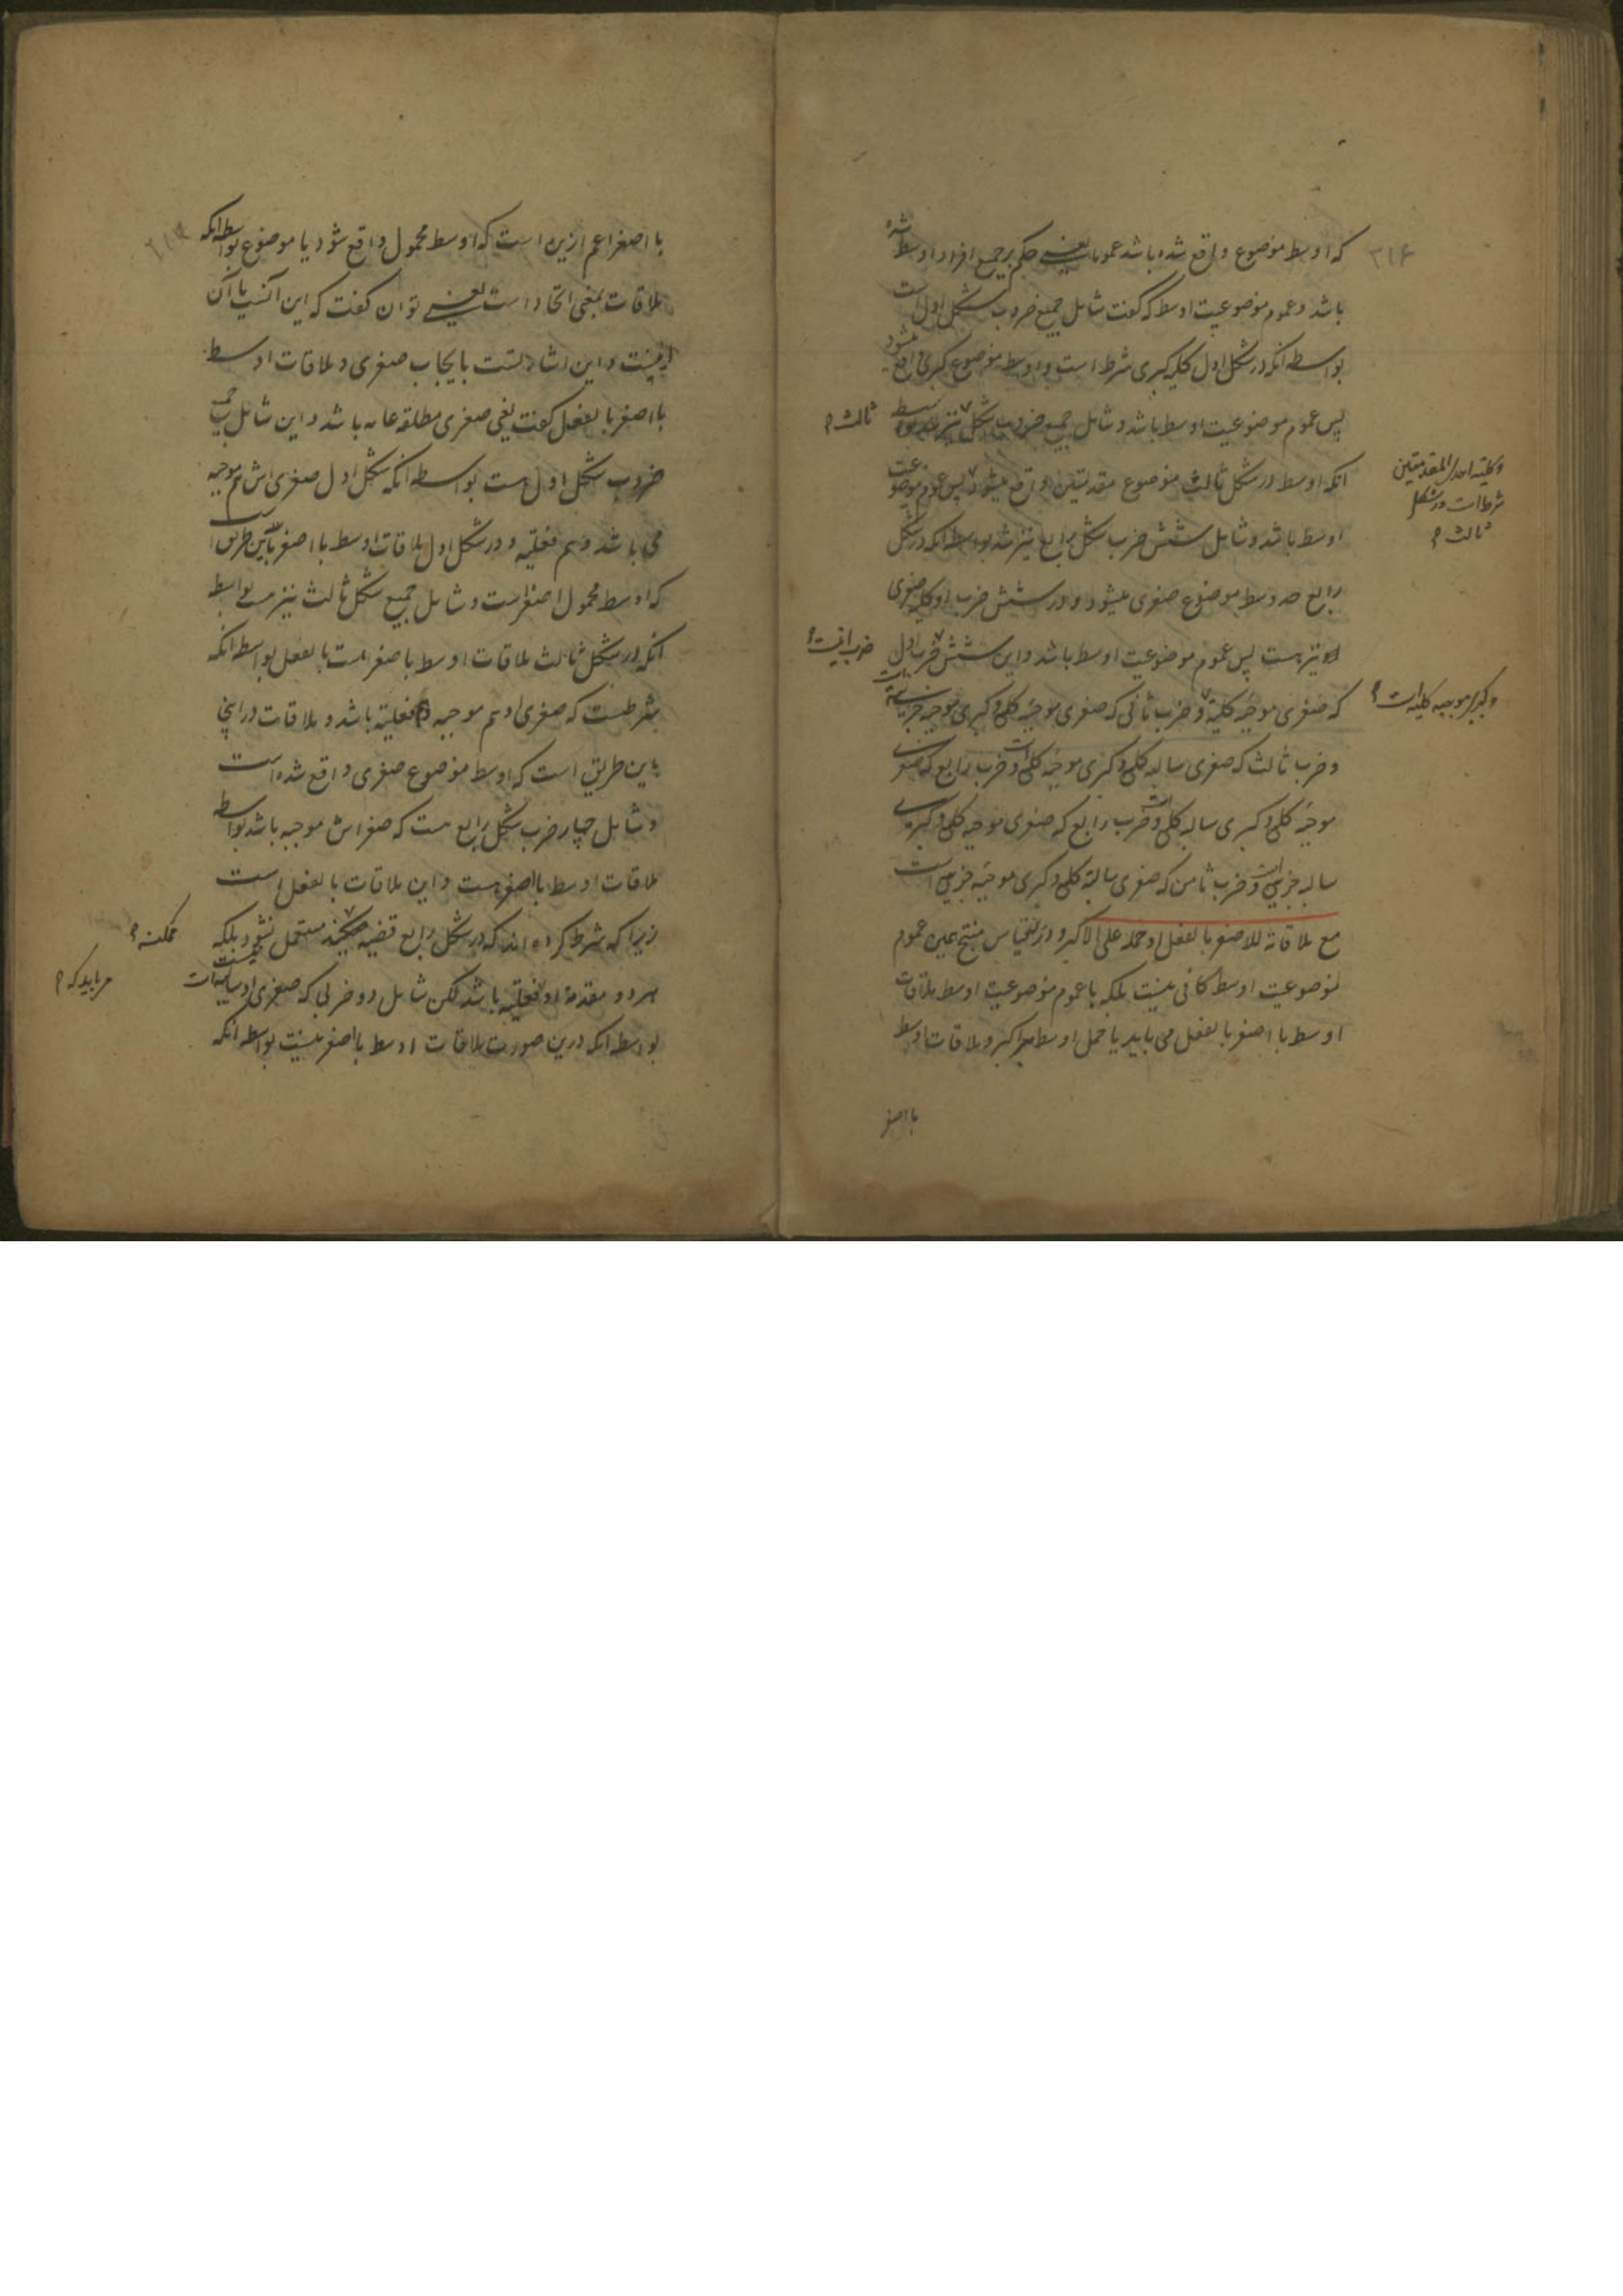 ۳۱۶
که اوسط موضوع واقع شده باشد عموما یعنی حکم بر جمیع افراد اوسط شده
باشد و عموم موضوعیت اوسط که گفت شامل جمیع ضروب شکل اول است
بواسطه انکه در شکل اول کلیه کبری شرط است و اوسط موضوع کبری واقع میشود
پس عموم موضوعیت اوسط باشد و شامل جمیع ضروب شکل نیز بواسطه
ثالث
انکه اوسط در شکل ثالث موضوع مقدمتین واقع میشود پس عموم موضوعیت
وکلیة احدی المقدمتین
شرط است در شکل
ثالث
اوسط باشد و شامل شش ضرب شکل رابع نیز شد بواسطه انکه در شکل
رابع اوسط موضوع صغری میشود و در شش ضرب او کلیه صغری
نیز هست پس عموم موضوعیت اوسط باشد و این شش ضرب اول
ضرب اینست
که صغری موجبه کلیه و ضرب ثانی که صغری موجبه کلی و کبری موجبه جزییه است
و کبری موجبه کلیه است
و ضرب ثالث که صغری سالبه کلی و کبری موجبه کلی است و ضرب رابع که صغری
موجبه کلی و کبری سالبه کلی است و ضرب رابع که صغری موجبه کلی و کبری
سالبه جزیی است و ضرب ثامن که صغری سالبه کلی و کبری موجبه جزیی است
مع ملاقاته للاصغر بالفعل او حمله علی الاکبر و در قیاس منتج همین عموم
موضوعیت اوسط کافی نیست بلکه با عموم موضوعیت اوسط ملاقات
اوسط با اصغر بالفعل می باید یا حمل اوسط بر اکبر و ملاقات اوسط
با اصغر
با اصغر اعم ازین است که اوسط محمول واقع شود یا موضوع بواسطه انکه
ملاقات بمعنی اتحاد است یعنی توان گفت که این آنست یا آن
اینست و این اشارتست بایجاب صغری و ملاقات اوسط
با اصغر بالفعل گفت یعنی صغری مطلقه عامه باشد و این شامل جمیع
ضروب شکل اول هست بواسطه انکه شکل اول صغری اش هم موجبه
می باشد و هم فعلیه و در شکل اول ملاقات اوسط با اصغر باین طریق است
که اوسط محمول اصغر است و شامل جمیع شکل ثالث نیز هست بواسطه
انکه در شکل ثالث ملاقات اوسط با صغر هست بالفعل بواسطه انکه
شرطست که صغری او هم موجبه و فعلیه باشد و ملاقات در اینجا
باین طریق است که اوسط موضوع صغری واقع شده است
و شامل چهار ضرب شکل رابع هست که صغراش موجبه باشد بواسطه
ملاقات اوسط با اصغر هست و این ملاقات بالفعل است
زیرا که شرط کرده اند که در شکل رابع قضیه مستعمل نشود بلکه
ممکنه
هر دو مقدمه او فعلیه باشد لکن شامل دو ضربی که صغری او سالبه است نیست
می باید که
بواسطه انکه درین صورت ملاقات اوسط با اصغر نیست بواسطه انکه